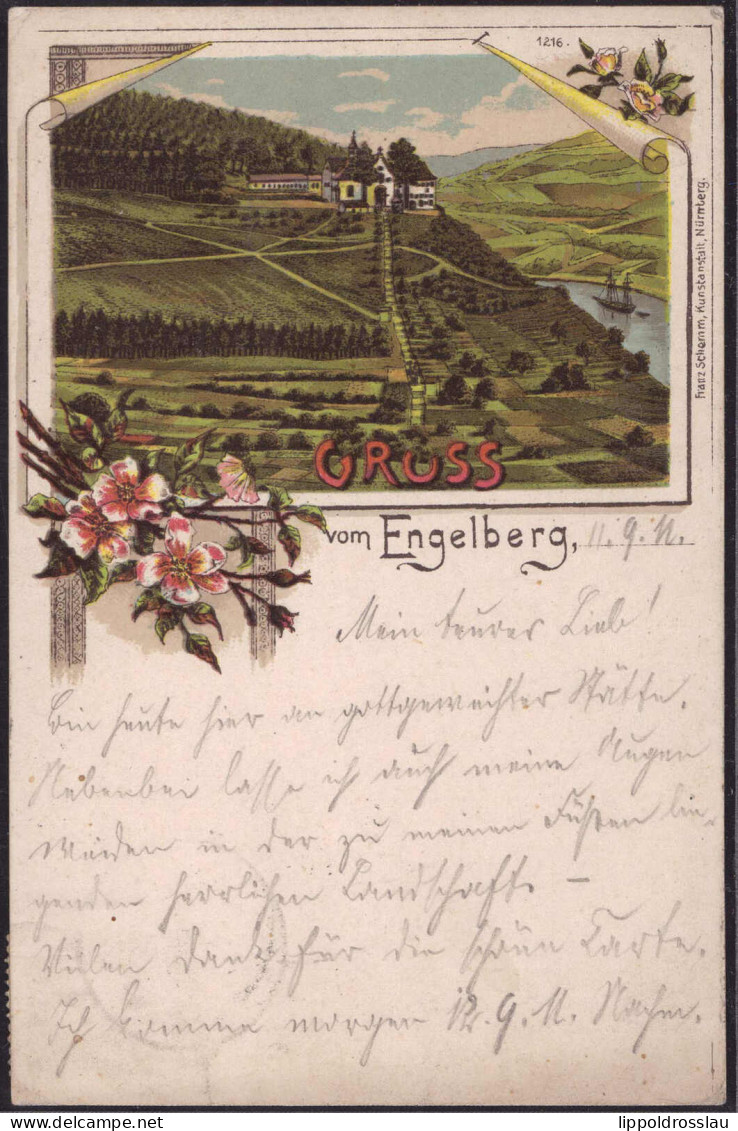 1216.
Franz Schemm, Kunstanstalt, Nürnberg.
GRUSS
vom Engelberg, 11.9.11.
Mein teures Lieb!
Bin heute hier an gottgeweihter Stätte.
Nebenbei lasse ich auch meine Augen
weiden in der zu meinen Füßen lie-
genden herrlichen Landschaft. –
Vielen Dank für die schöne Carte.
Ich komme morgen 12.9.11. Nachm.
lippoldrosslau